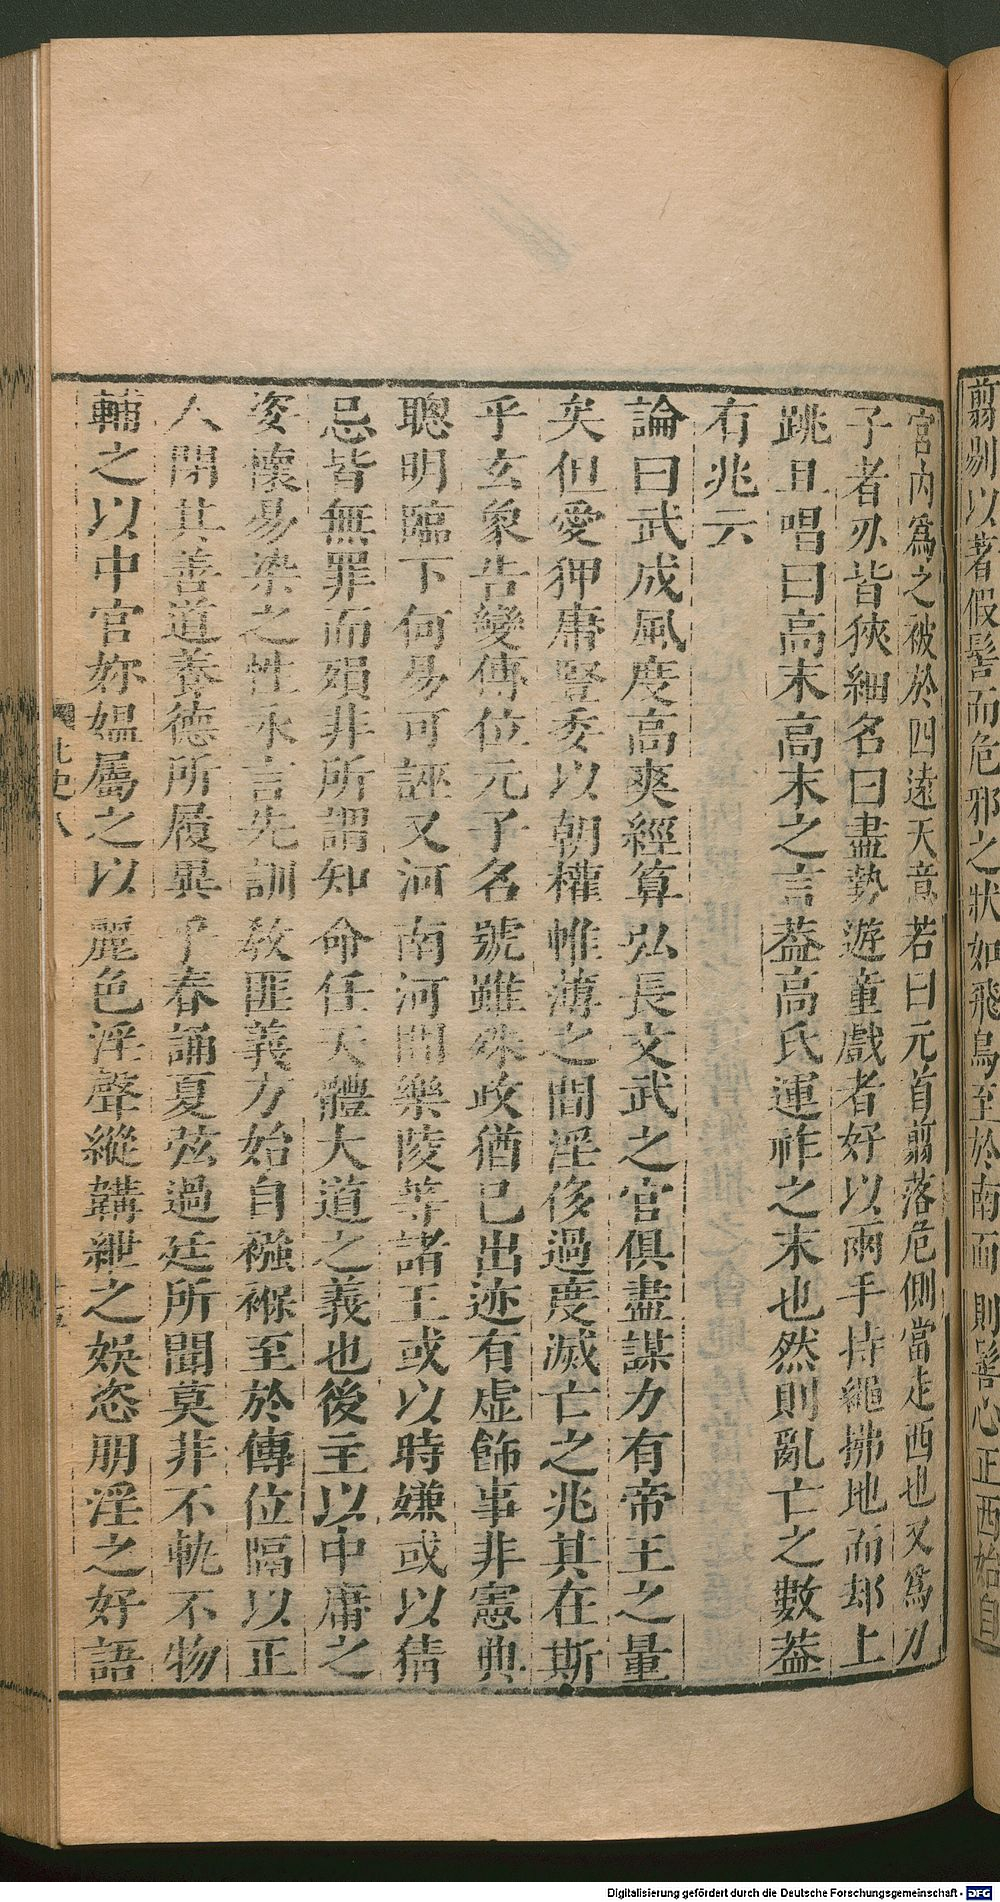 翦剔以著假髻而危邪之狀如飛鳥至於南面則髻心正西始自
宮内爲之被於四遠天意若曰元首翦落危側當走西也又爲刀
子者刃皆狹細名曰盡勢遊童戲者好以兩手持繩拂地而却上
跳且唱曰高末高末之言葢高氏運祚之末也然則亂亡之數葢
有兆云
論曰武成風度高爽經算弘長文武之官俱盡謀力有帝王之量
矣但愛狎庸豎委以朝權帷薄之間淫侈過度滅亡之兆其在斯
乎玄象告變傳位元子名號雖殊政猶已出迹有虛飾事非憲典
聰明臨下何易可誣又河南河間樂陵等諸王或以時嫌或以猜
忌皆無罪而殞非所謂知命任天體大道之義也後主以中庸之
姿懷易染之性永言先訓敎匪義方始自襁褓至於傳位隔以正
人閉其善道養德所履異乎春誦夏弦過廷所聞莫非不軌不物
輔之以中官妳媪屬之以麗色淫聲縱韝紲之娛恣朋淫之好語
北史八
Digitalisierung gefördert durch die Deutsche Forschungsgemeinschaft - DFG